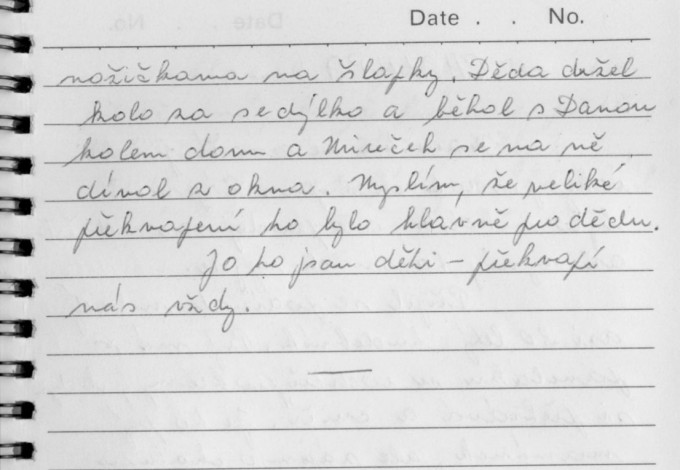 Date . . No.
nožičkama na šlapky. Děda držel
kolo za sedýlko a běhal s Danou
kolem domu a Mireček se na ně
díval z okna. Myslím, že veliké
překvapení to bylo hlavně pro dědu.
Jo to jsou děti – překvapí
nás vždy.